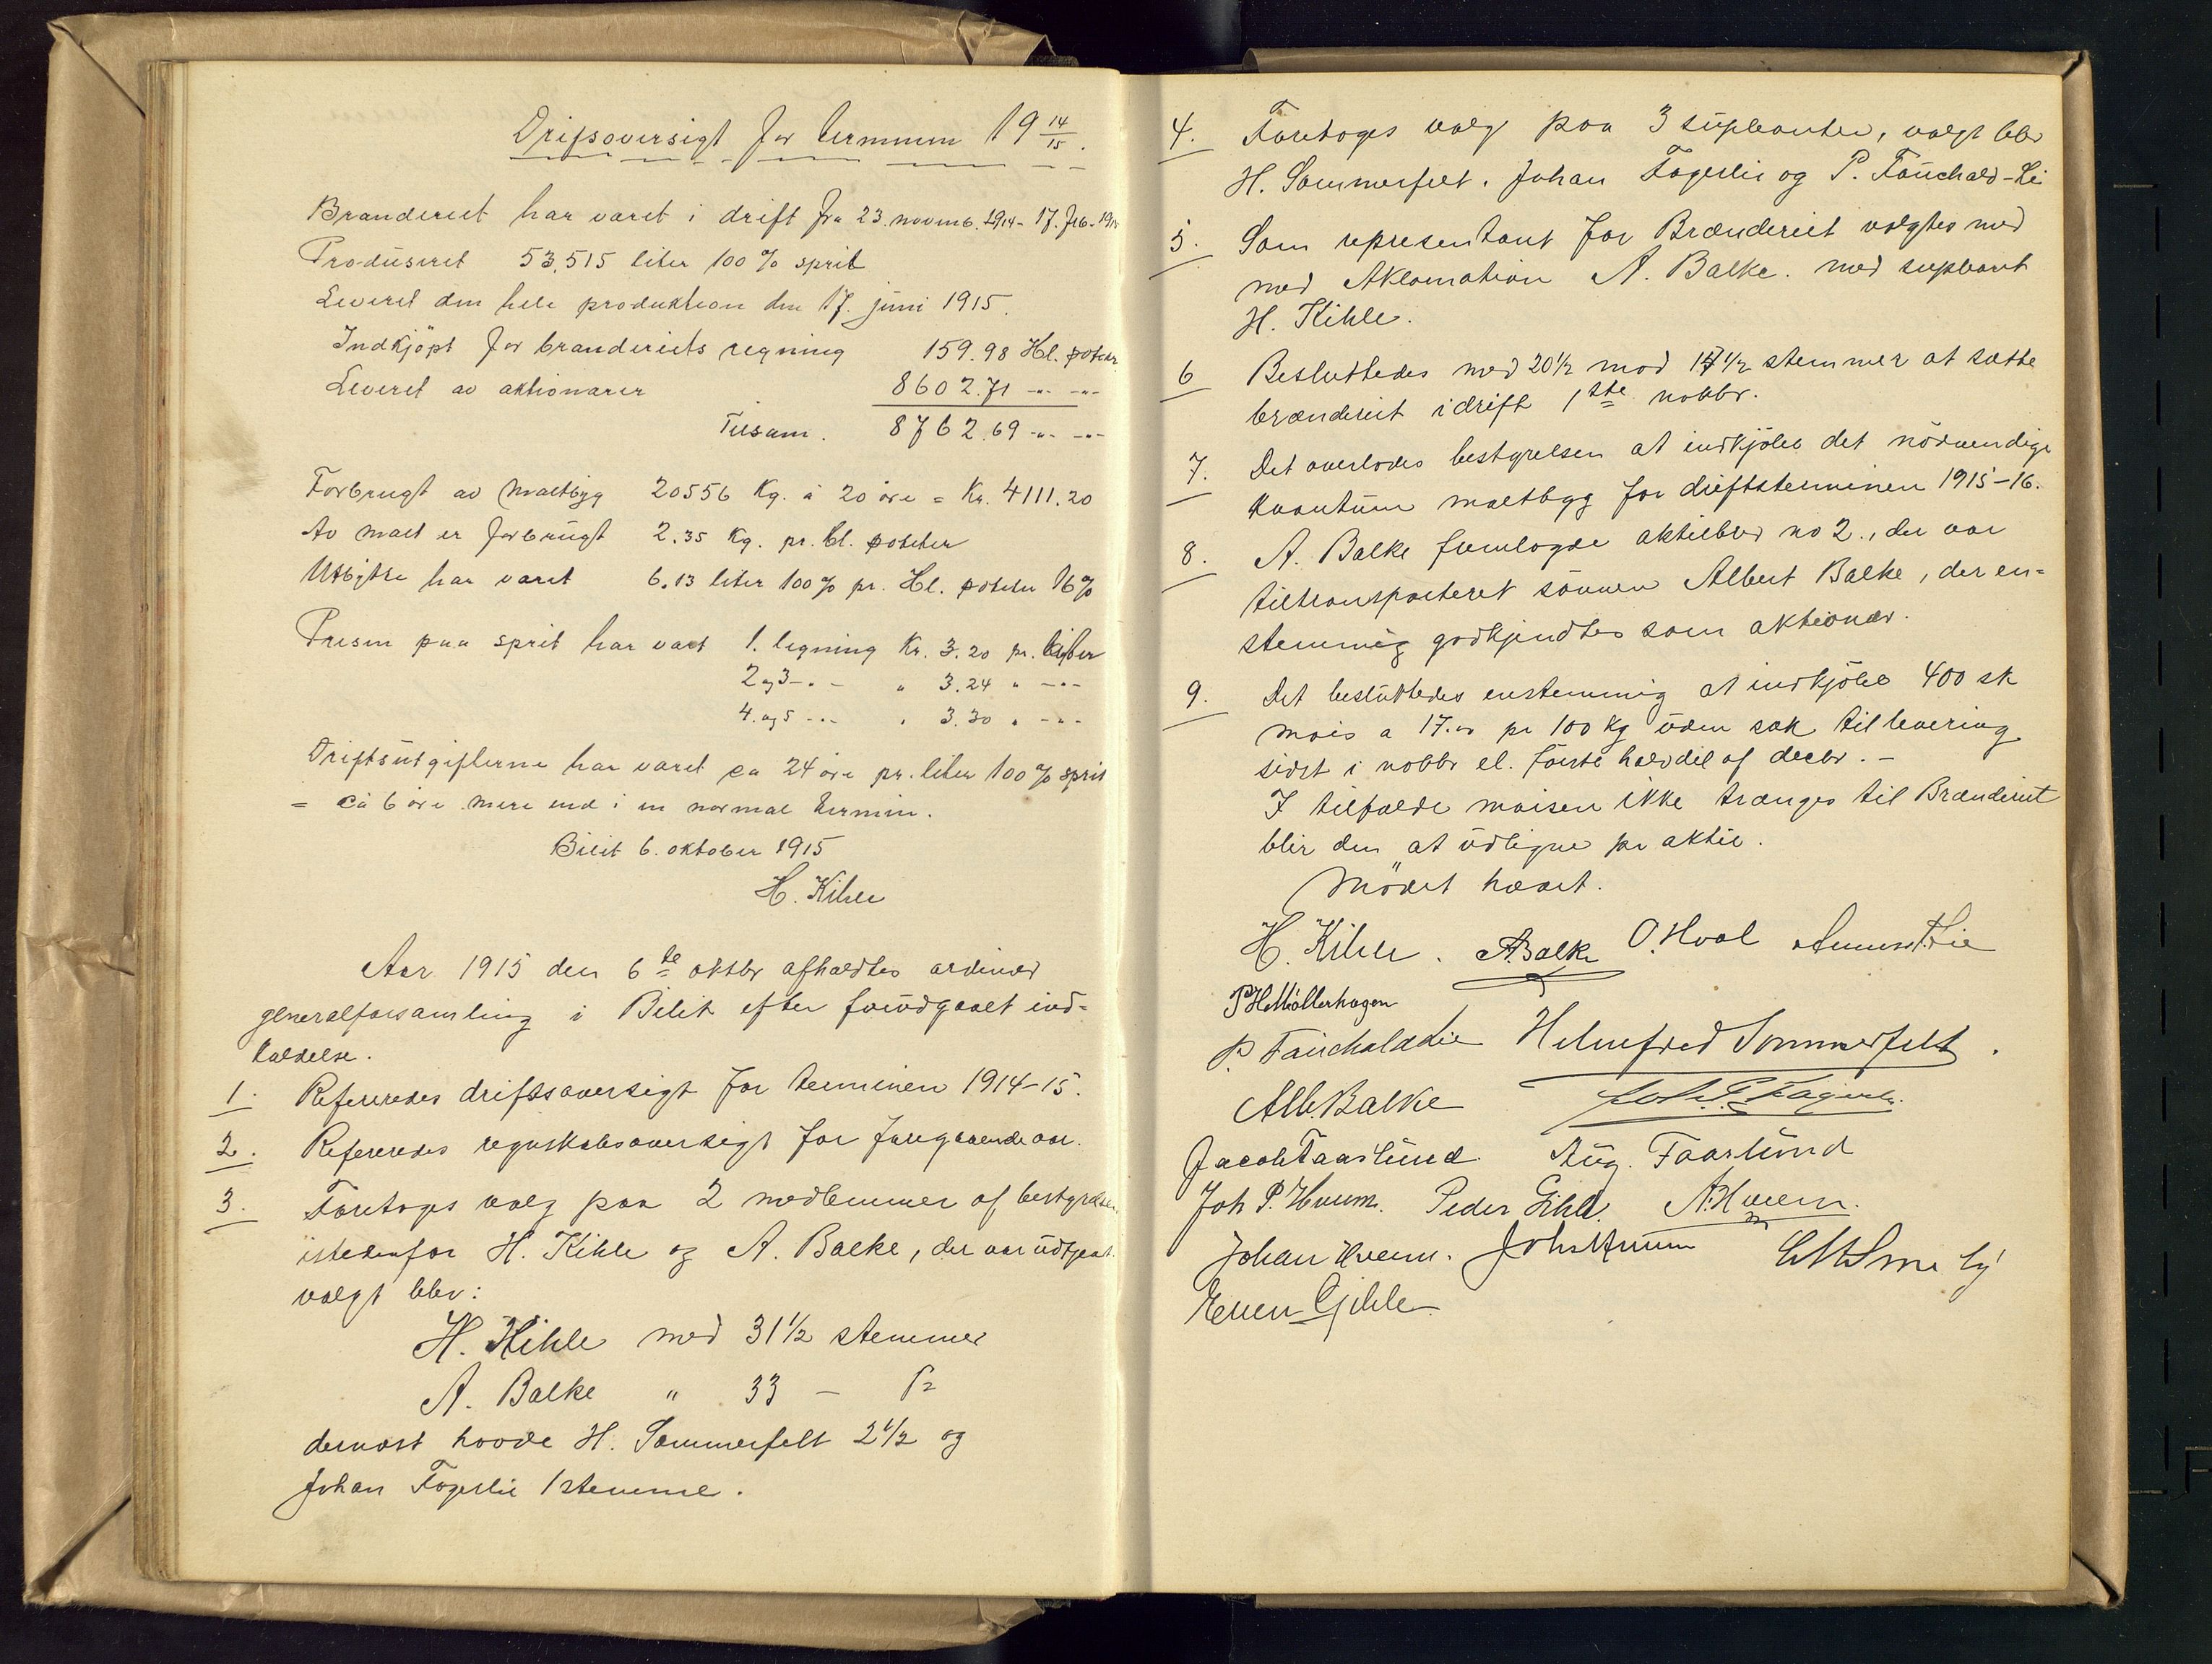 Drifsoversigt for terminen 19 14/15.
Branderiet har varet i drift fra 23. novemb. 1914 - 17. feb. 1915
Produseret 53,515 liter 100 % sprit
Leveret den hele produktion den 17. juni 1915.
Indkjöpt for branderiets regning 159.98 Hl. poteter
Leveret av aktionærer 8602.71 -"- -"-
Tilsam. 8762.69 -"- -"-
Forbrugt av maltbyg 20556 Kg. à 20 öre = Kr. 4111.20
Av malt er forbrugt 2.35 Kg. pr. hl. poteter
Utbytte har varet 6.13 liter 100 % pr. Hl. poteter 16 %
Prisen paa sprit har vært 1. ligning Kr. 3.20 pr. liter
2 og 3 -"- " 3.24 " -"-
4. og 5 -"- " 3.30 " -"-
Driftsutgifterne har varet ca 24 öre pr. liter 100 % sprit
= ca 6 öre mere end i en normal termin.
Bilit 6. oktober 1915
H. Kihle
Aar 1915 den 6te oktbr afholdtes ordinær
generalforsamling i Bilit efter forudgaaet ind-
kaldelse.
1. Refereredes driftsoversigt for terminen 1914-15.
2. Refereredes regnskabsoversigt for foregaaende aar.
3. Foretoges valg paa 2 medlemmer af bestyrelsen
istedenfor H. Kihle og A. Balke, der var udtraat.
valgt blev:
H. Kihle med 31 1/2 stemmer
A. Balke " 33 -
dernæst havde H. Sommerfelt 2 1/2 og
Johan Fagerlie 1 stemme.
4. Foretoges valg paa 3 supleanter, valgt blev
H. Sommerfelt. Johan Fagerlie og P. Fauchald-Li
5. Som representant for Brænderiet valgtes med
med Aklamation A. Balke. med supleant
H. Kihle.
6 Besluttedes med 20 1/2 mod 17 1/2 stemmer at sætte
brænderiet i drift 1ste novbr.
7. Det overlodes bestyrelsen at indkjöbe det nödvendige
kvantum maltbyg for driftsterminen 1915-16.
8. A. Balke fremlagde aktiebrev no 2., der var
tiltransporteret sönnen Albert Balke, der en-
stemmig godkjendtes som aktionær.
9. Det besluttedes enstemmig at indkjöbe 400 sk
mais a 17.00 pr 100 Kg uden sæk til levering
sidst i novbr el. förste halvdel af decbr. -
I tilfælde maisen ikke trænges til Brænderiet
blir den at udligne pr aktie.
Mödet hævet.
H. Kihle. A. Balke O. Hval
P H Möllerhagen
P. Fauchald Lie Helmfred Sommerfelt.
Alb. Balke Joh. Fagerli.
Jacob Faarlund. Aug. Faarlund
Joh P. Hveem. Peder Gihle. A. Hveem.
Johan Hveem.
Even Gihle